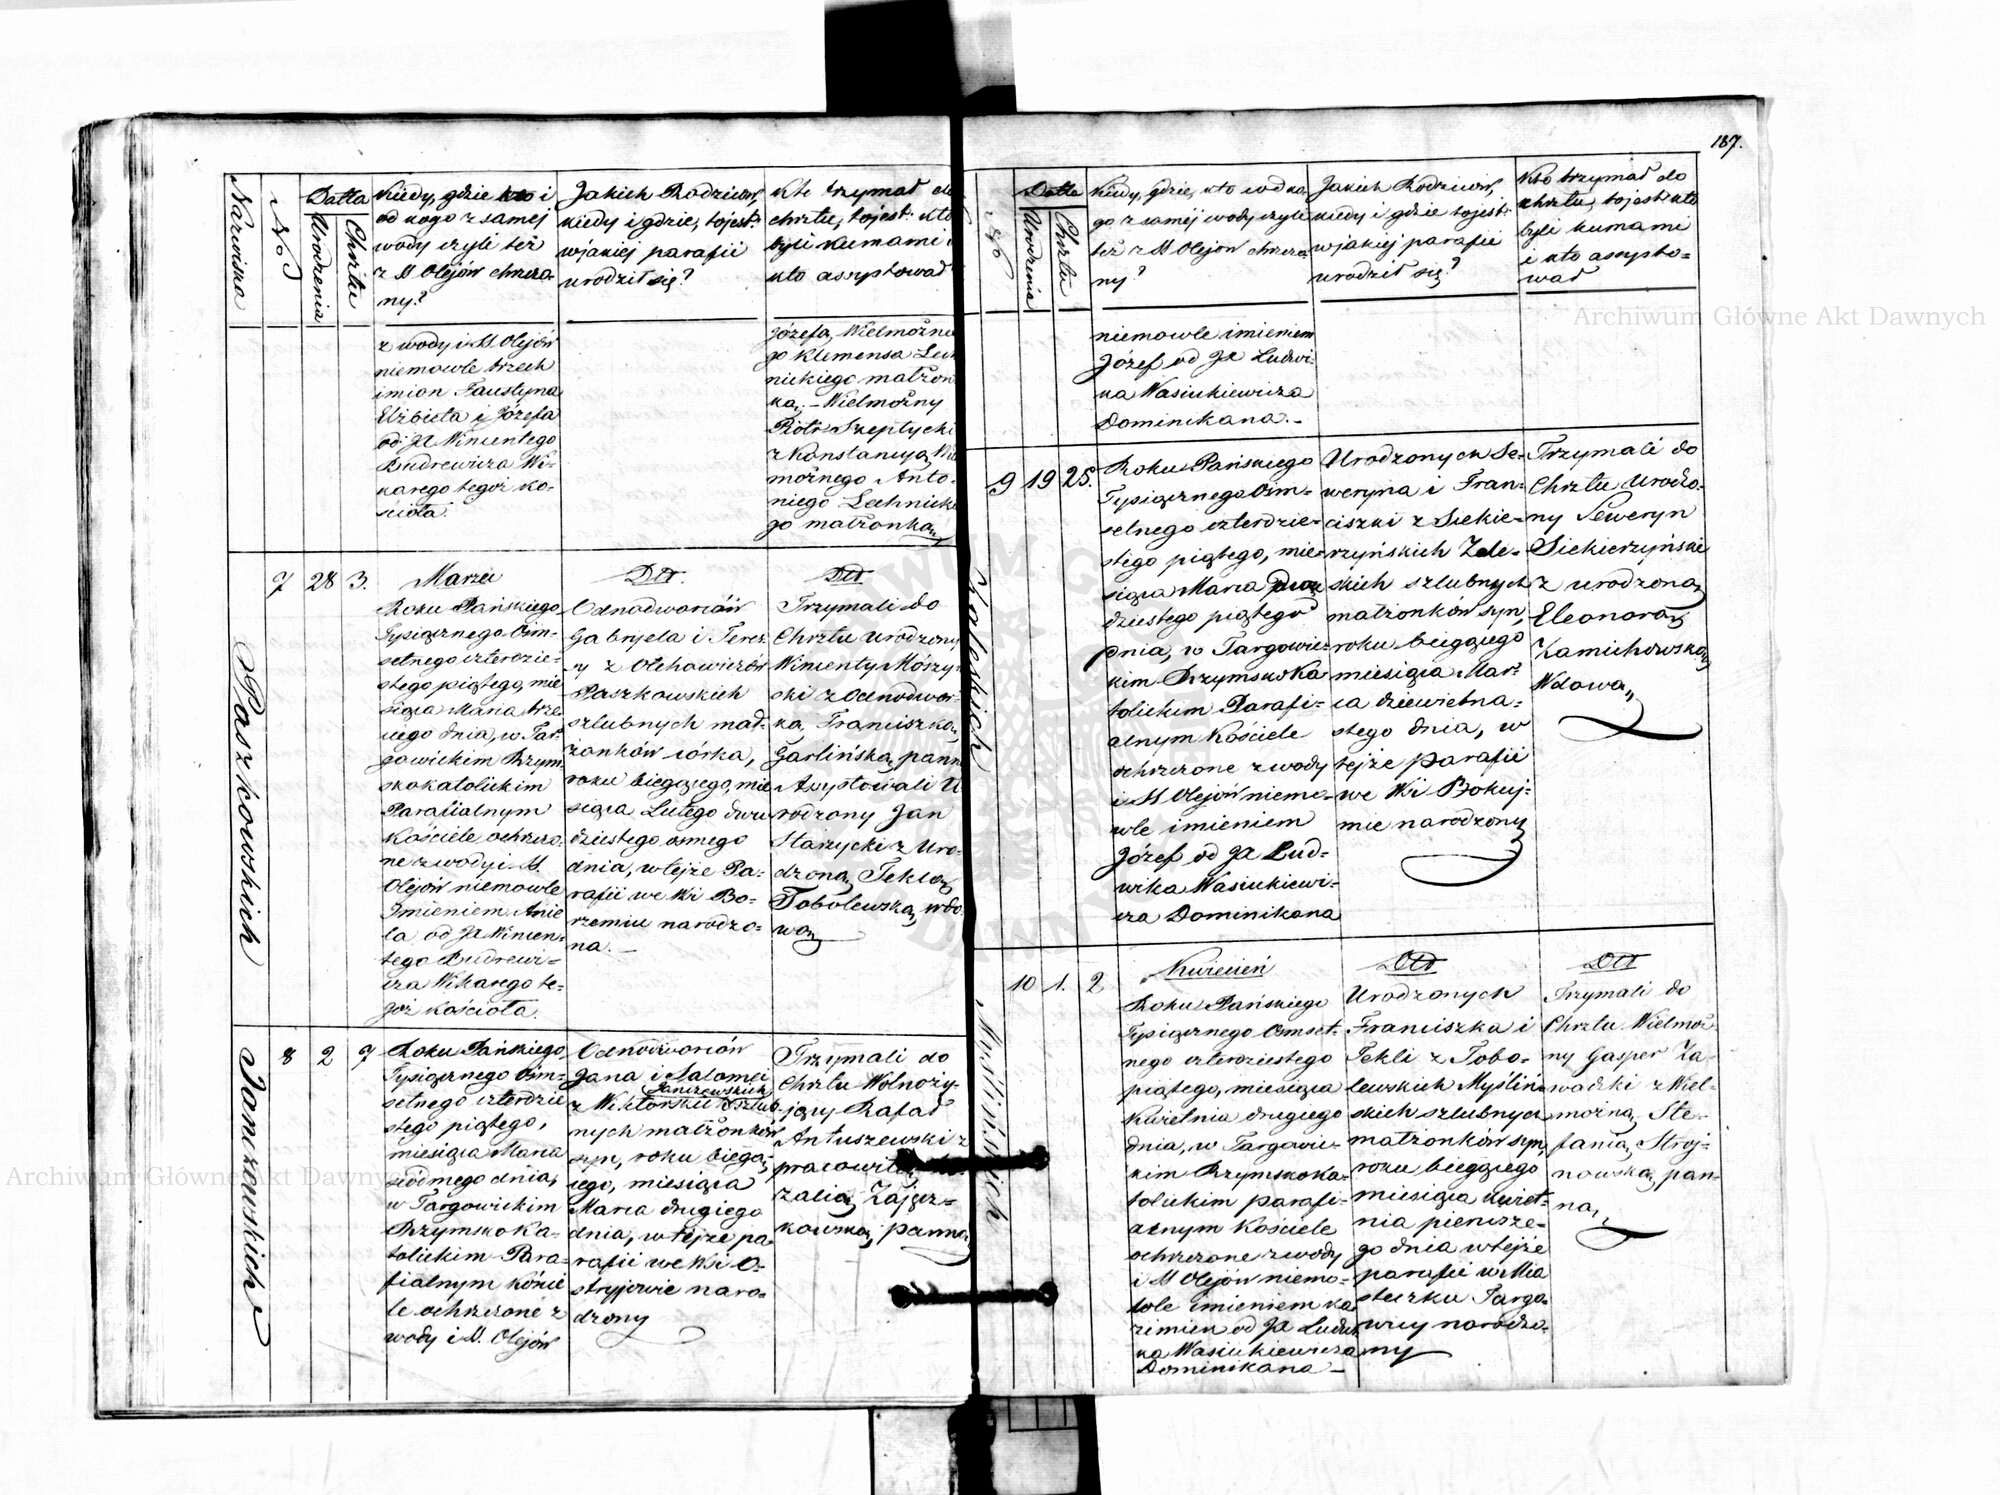 187.
Nazwiska
No
Datta
Urodzenia
Chrztu
Kiedy, gdzie kto i
od kogo z samej
wody czyli też
z SS Olejów chrzczo-
ny?
Jakich Rodziców,
kiedy i gdzie, to jest:
w jakiej parafii
urodził się?
Kto trzymał do
chrztu, to jest: kto
byli kumami i
kto assystował
z wody i SS. Olejów
niemowle trzech
imion Faustyna
Elżbieta i Józefa
od JX Wincentego
Budrewicza Wi-
karego tegoż ko-
ścioła.
Józefą, Wielmożne
go Klemensa Lech
nickiego małżon
ką. — Wielmożny
Piotr Szeptycki
z Konstancyą Wiel
możnego Anto-
niego Lechnickie
go małżonką
Paszkowskich
7 28 3.
Marzec
Roku Pańskiego
Tysiącznego Ośm-
setnego czterdzie-
stego piątego, mie
siąca Marca trze
ciego dnia, w Tar
gowickim Rzym
skokatolickim
Parafialnym
Kościele ochrzczo-
ne z wody i SS.
Olejów niemowle
Imieniem Anie
la od JX Wincen-
tego Budrewi-
cza Wikarego te-
goż kościoła.
Dtt.
Odnodworców
Gabryela i Teres
y z Olchowiczów
Paszkowskich
szlubnych mał-
żonków córka,
roku bieżącego, mie
siąca Lutego dwu
dziestego osmego
dnia, w tejże Pa-
rafii we Wsi Bo-
rzemiu narodzo-
na. —
Dtt.
Trzymali do
Chrztu urodzony
Wincenty Mószyń
ski z odnodwor-
ką, Franciszką
Garlińską panną
Asystowali U
rodzony Jan
Starzycki z Uro-
dzoną Teklą
Tobolewską, wdo-
wą
Janczewskich
8 2 7
Roku Pańskiego
Tysiącznego Ośm-
setnego czterdzie
stego piątego,
miesiąca Marca
siódmego dnia,
w Targowickim
Rzymsko Ka-
tolickim Para-
fialnym Kości
le ochrzczone z
wody i SS. Olejów
Odnodworców
Jana i Salomei
Janczewskich
z Wiktorskich szlub-
nych małżonków
syn, roku bieżą-
cego, miesiąca
Marca drugiego
dnia, w tejże pa-
rafii we Wsi O-
stryjowie naro-
dzony
Trzymali do
Chrztu Wolnoży-
jący Rafał
Antuszewski z
pracowitą
zalią Zając-
kowską, panną
No
Datta
Urodzenia
Chrztu
Kiedy, gdzie, kto i od ko-
go z samej wody czyli
też z SS Olejów chrzczo-
ny?
Jakich Rodziców,
kiedy i gdzie to jest:
w jakiej parafii
urodził się?
Kto trzymał do
chrztu, to jest: kto
byli kumami
i kto assysto-
wał
niemowle imieniem
Józef od JX Ludwi-
ka Wasiukiewicza
Dominikana. —
9 19 25.
Roku Pańskiego
Tysiącznego Ośm-
setnego czterdzie-
stego piątego, mie-
siąca Marca dwu
dziestego piątego
dnia, w Targowic-
kim Rzymskoka
tolickim Parafi-
alnym Kościele
ochrzczone z wody
i SS Olejów niemo-
wle imieniem
Józef od JX Lud-
wika Wasiukiewi-
cza Dominikana
Urodzonych Se-
weryna i Fran-
ciszki z Siekie-
rzyńskich Zale-
skich szlubnych
małżonków syn,
roku bieżącego
miesiąca Mar-
ca dziewietna-
stego dnia, w
tejże parafii
we Wsi Bokuj-
mie narodzony
Trzymali do
Chrztu Urodzo-
ny Seweryn
Siekierzyński
z urodzoną
Eleonorą
Kamichowską
Wdową,
Myślińskich
10 1. 2
Kwiecień
Roku Pańskiego
Tysiącznego Ośmset-
nego czterdziestego
piątego, miesiąca
Kwietnia drugiego
dnia, w Targowic-
kim Rzymskoka-
tolickim parafi-
alnym Kościele
ochrzczone z wody
i SS Olejów niemo-
wle imieniem Ka-
zimierz od JX Ludwi
ka Wasiukiewicza
Dominikana —
Dtt
Urodzonych
Franciszka i
Tekli z Tobo-
lewskich Myśliń-
skich szlubnych
małżonków syn,
roku bieżącego
miesiąca Kwiet-
nia pierwsze-
go dnia w tejże
parafii w Mia
steczku Targo-
wicy narodzo-
ny
Dtt
Trzymali do
Chrztu Wielmoż
ny Gasper Za-
wadzki z Wiel-
możną Ste-
fanią Stroj-
nowską, pan-
ną,
Archiwum Główne Akt Dawnych
Archiwum Główne Akt Dawnych